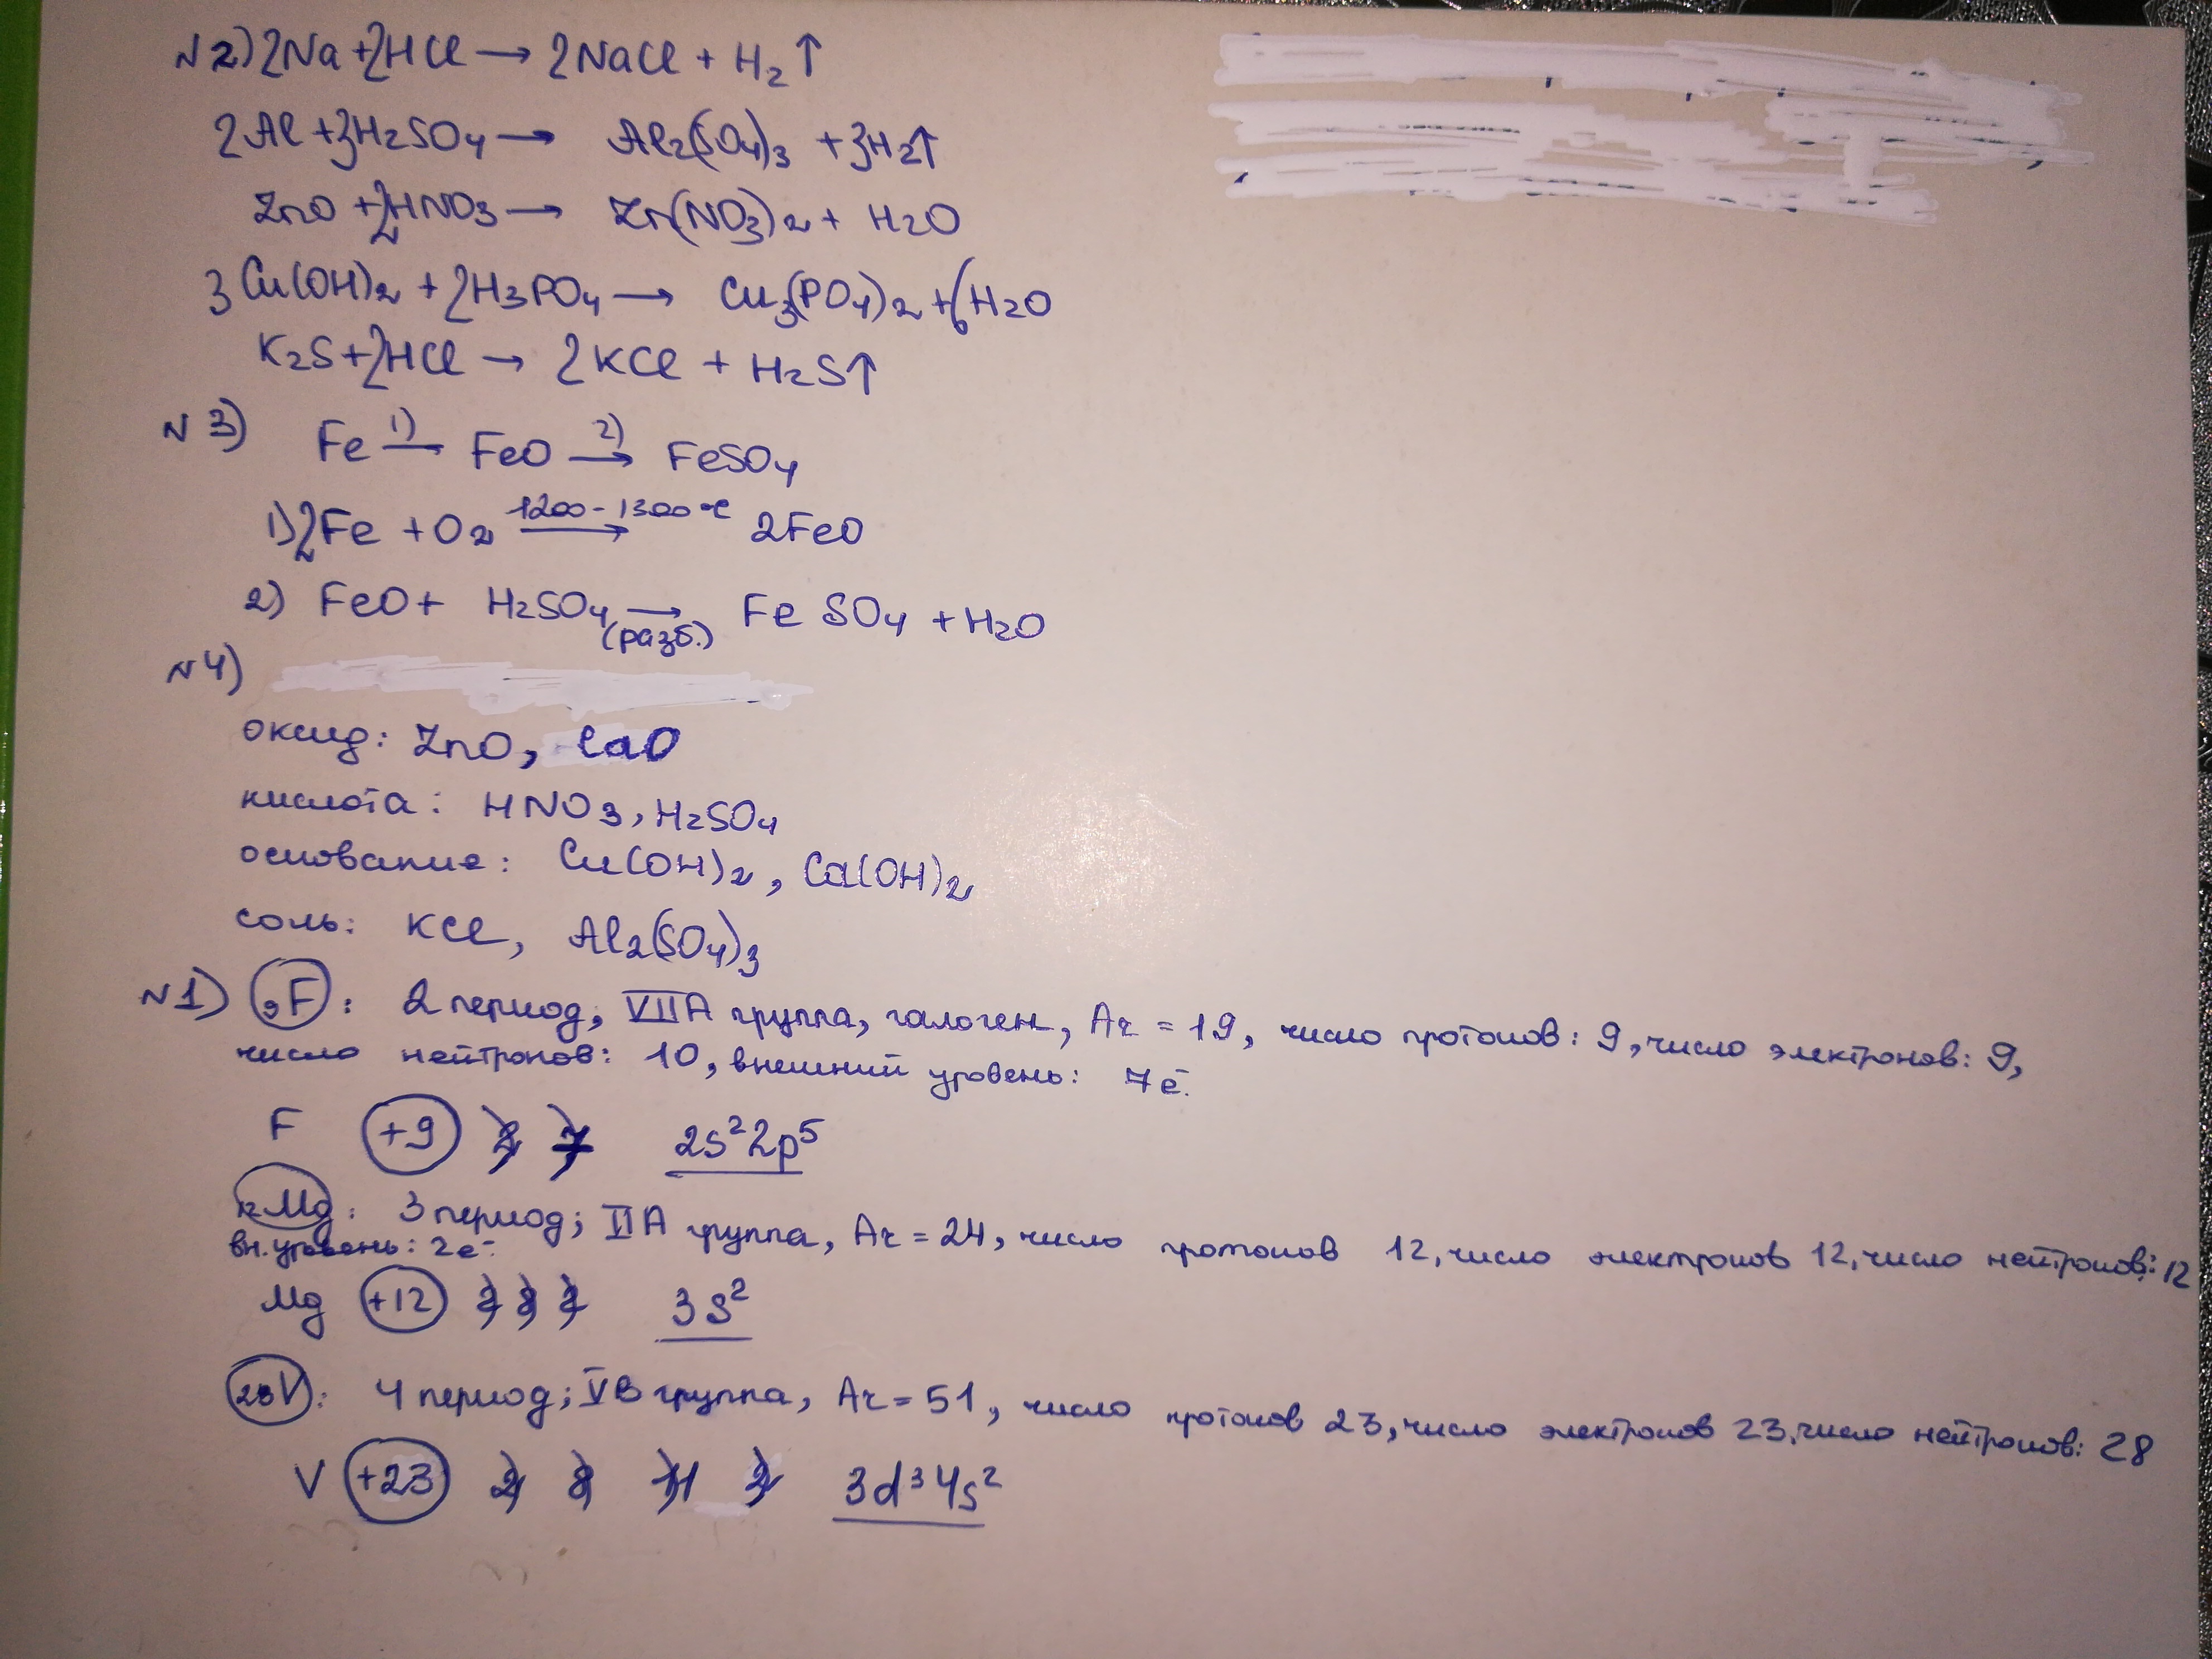 N2) 2Na + 2HCl → 2NaCl + H₂↑
2Al + 3H₂SO₄ → Al₂(SO₄)₃ + 3H₂↑
ZnO + 2HNO₃ → Zn(NO₃)₂ + H₂O
3Cu(OH)₂ + 2H₃PO₄ → Cu₃(PO₄)₂ + 6H₂O
K₂S + 2HCl → 2KCl + H₂S↑
N3) Fe —1)— FeO —2)→ FeSO₄
1) 2Fe + O₂ —1200-1300 °C→ 2FeO
2) FeO + H₂SO₄ (разб.) → FeSO₄ + H₂O
N4)
оксид: ZnO, CaO
кислота: HNO₃, H₂SO₄
основание: Cu(OH)₂, Ca(OH)₂
соль: KCl, Al₂(SO₄)₃
N1) ₉F: 2 период; VIIA группа, галоген, Ar = 19, число протонов: 9, число электронов: 9,
число нейтронов: 10, внешний уровень: 7e⁻.
F +9 )2 )7 2s²2p⁵
₁₂Mg: 3 период; IIA группа, Ar = 24, число протонов 12, число электронов 12, число нейтронов: 12
вн. уровень: 2e⁻.
Mg +12 )2 )8 )2 3s²
₂₃V: 4 период; VB группа, Ar = 51, число протонов 23, число электронов 23, число нейтронов: 28
V +23 )2 )8 )11 )2 3d³4s²